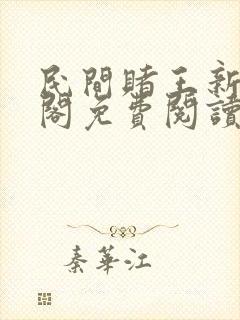 民間賭王新
閣免費閱讀
秦華江